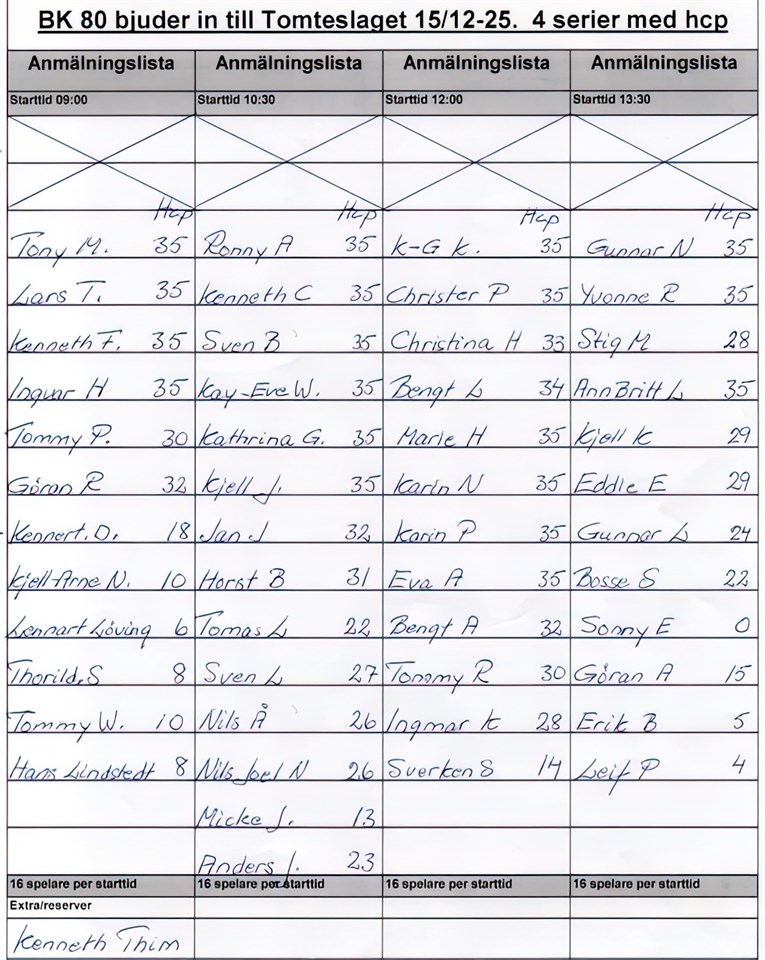 BK 80 bjuder in till Tomteslaget 15/12-25. 4 serier med hcp
Anmälningslista Anmälningslista Anmälningslista Anmälningslista
Starttid 09:00 Starttid 10:30 Starttid 12:00 Starttid 13:30
Hcp Hcp Hcp Hcp
Tony M. 35 Ronny A 35 K-G K. 35 Gunnar N 35
Lars T. 35 Kenneth C 35 Christer P 35 Yvonne R 35
Kenneth F. 35 Sven B 35 Christina H 33 Stig M 28
Ingvar H 35 Kay-Eve W. 35 Bengt L 34 AnnBritt L 35
Tommy P. 30 Kathrina G. 35 Marie H 35 Kjell K 29
Göran R 32 Kjell J. 35 Karin N 35 Eddie E 29
Kennert. D. 18 Jan J 32 Karin P 35 Gunnar L 24
Kjell-Arne N. 10 Horst B 31 Eva A 35 Bosse S 22
Lennart Löving 6 Tomas L 22 Bengt A 32 Sonny E 0
Thorild. S 8 Sven L 27 Tommy R 30 Göran A 15
Tommy W. 10 Nils Å 26 Ingmar K 28 Erik B 5
Hans Lindstedt 8 Nils Joel N 26 Sverker S 14 Leif P 4
Micke J. 13
Anders J. 23
16 spelare per starttid 16 spelare per starttid 16 spelare per starttid 16 spelare per starttid
Extra/reserver
Kenneth Thim